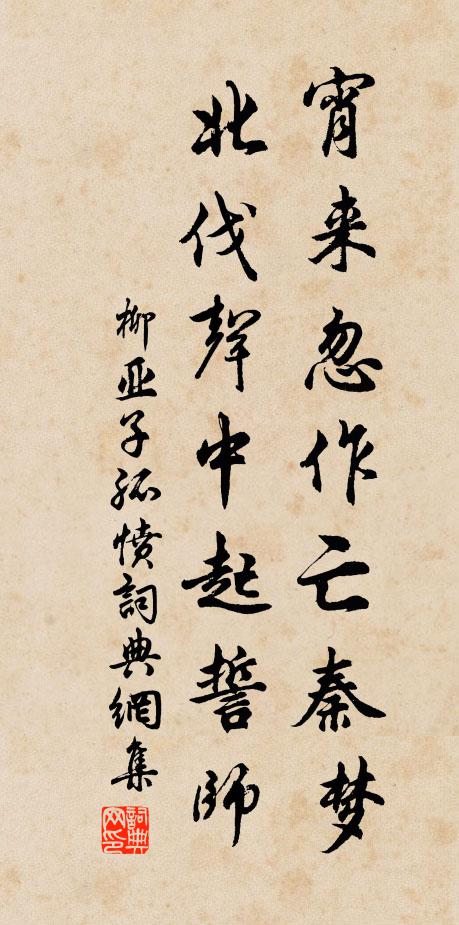 宵来忽作亡秦梦
北伐聲中起誓師
柳亚子孤憤詞典網集
詞典网印